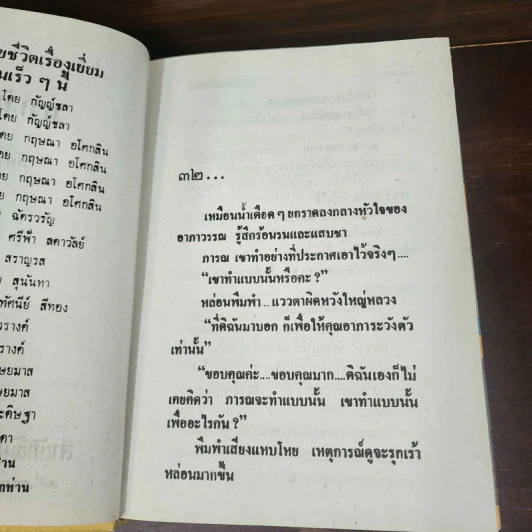 ยชีวิตเรื่องเยี่ยม
นเร็ว ๆ นี้
โดย กัญญ์ชลา
โดย กัญญ์ชลา
ดย กฤษณา อโศกสิน
ดย กฤษณา อโศกสิน
ดย กฤษณา อโศกสิน
ย กฤษณา อโศกสิน
ฉัตรวรัญ
ศรีฟ้า ลดาวัลย์
สราญรส
สุนันทา
ทัศนีย์ สีทอง
วรางค์
รางค์
ษยมาส
ษยมาส
ะดิษฐา
ดา
าน
กท่าน
๓๒...
เหมือนน้ำเดือด ๆ ยกราดลงกลางหัวใจของ
อาภาวรรณ รู้สึกร้อนรนและแสบชา
ภารณ เขาทำอย่างที่ประกาศเอาไว้จริงๆ....
“เขาทำแบบนั้นหรือคะ ?”
หล่อนพึมพำ... แววตาผิดหวังใหญ่หลวง
“ที่ดิฉันมาบอก ก็เพื่อให้คุณอาภาระวังตัว
เท่านั้น”
“ขอบคุณค่ะ....ขอบคุณมาก....ดิฉันเองก็ไม่
เคยคิดว่า ภารณจะทำแบบนั้น เขาทำแบบนั้น
เพื่ออะไรกัน ?”
พึมพำเสียงแหบโหย เหตุการณ์ดูจะรุกเร้า
หล่อนมากขึ้น